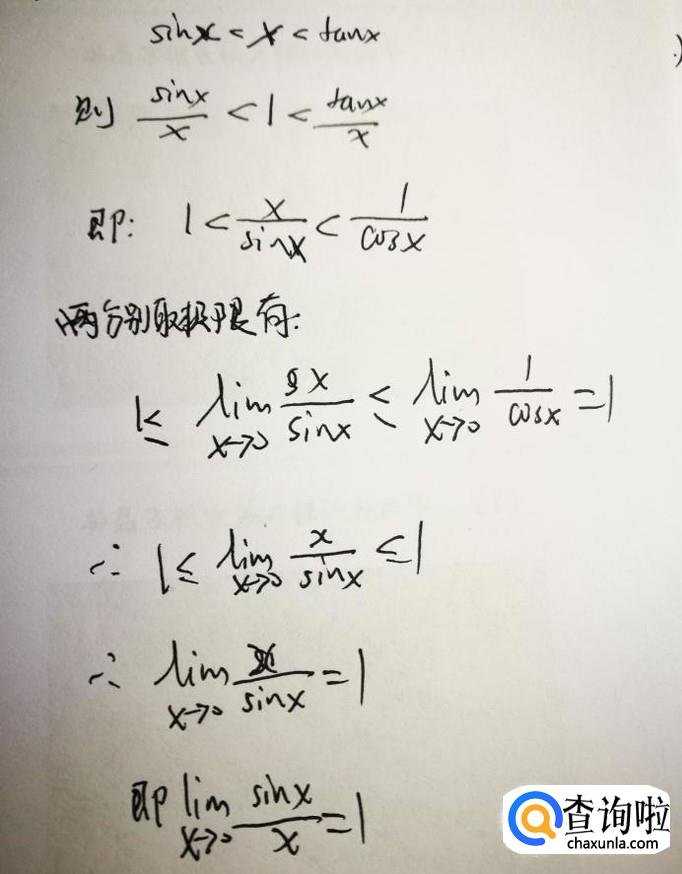 sinx < x < tanx
则 sinx/x < 1 < tanx/x
即: 1 < x/sinx < 1/cosx
两分别取极限有:
1 ≤ lim x→0 x/sinx ≤ lim x→0 1/cosx = 1
∴ 1 ≤ lim x→0 x/sinx ≤ 1
∴ lim x→0 x/sinx = 1
即 lim x→0 sinx/x = 1
查询啦
chaxunla.com